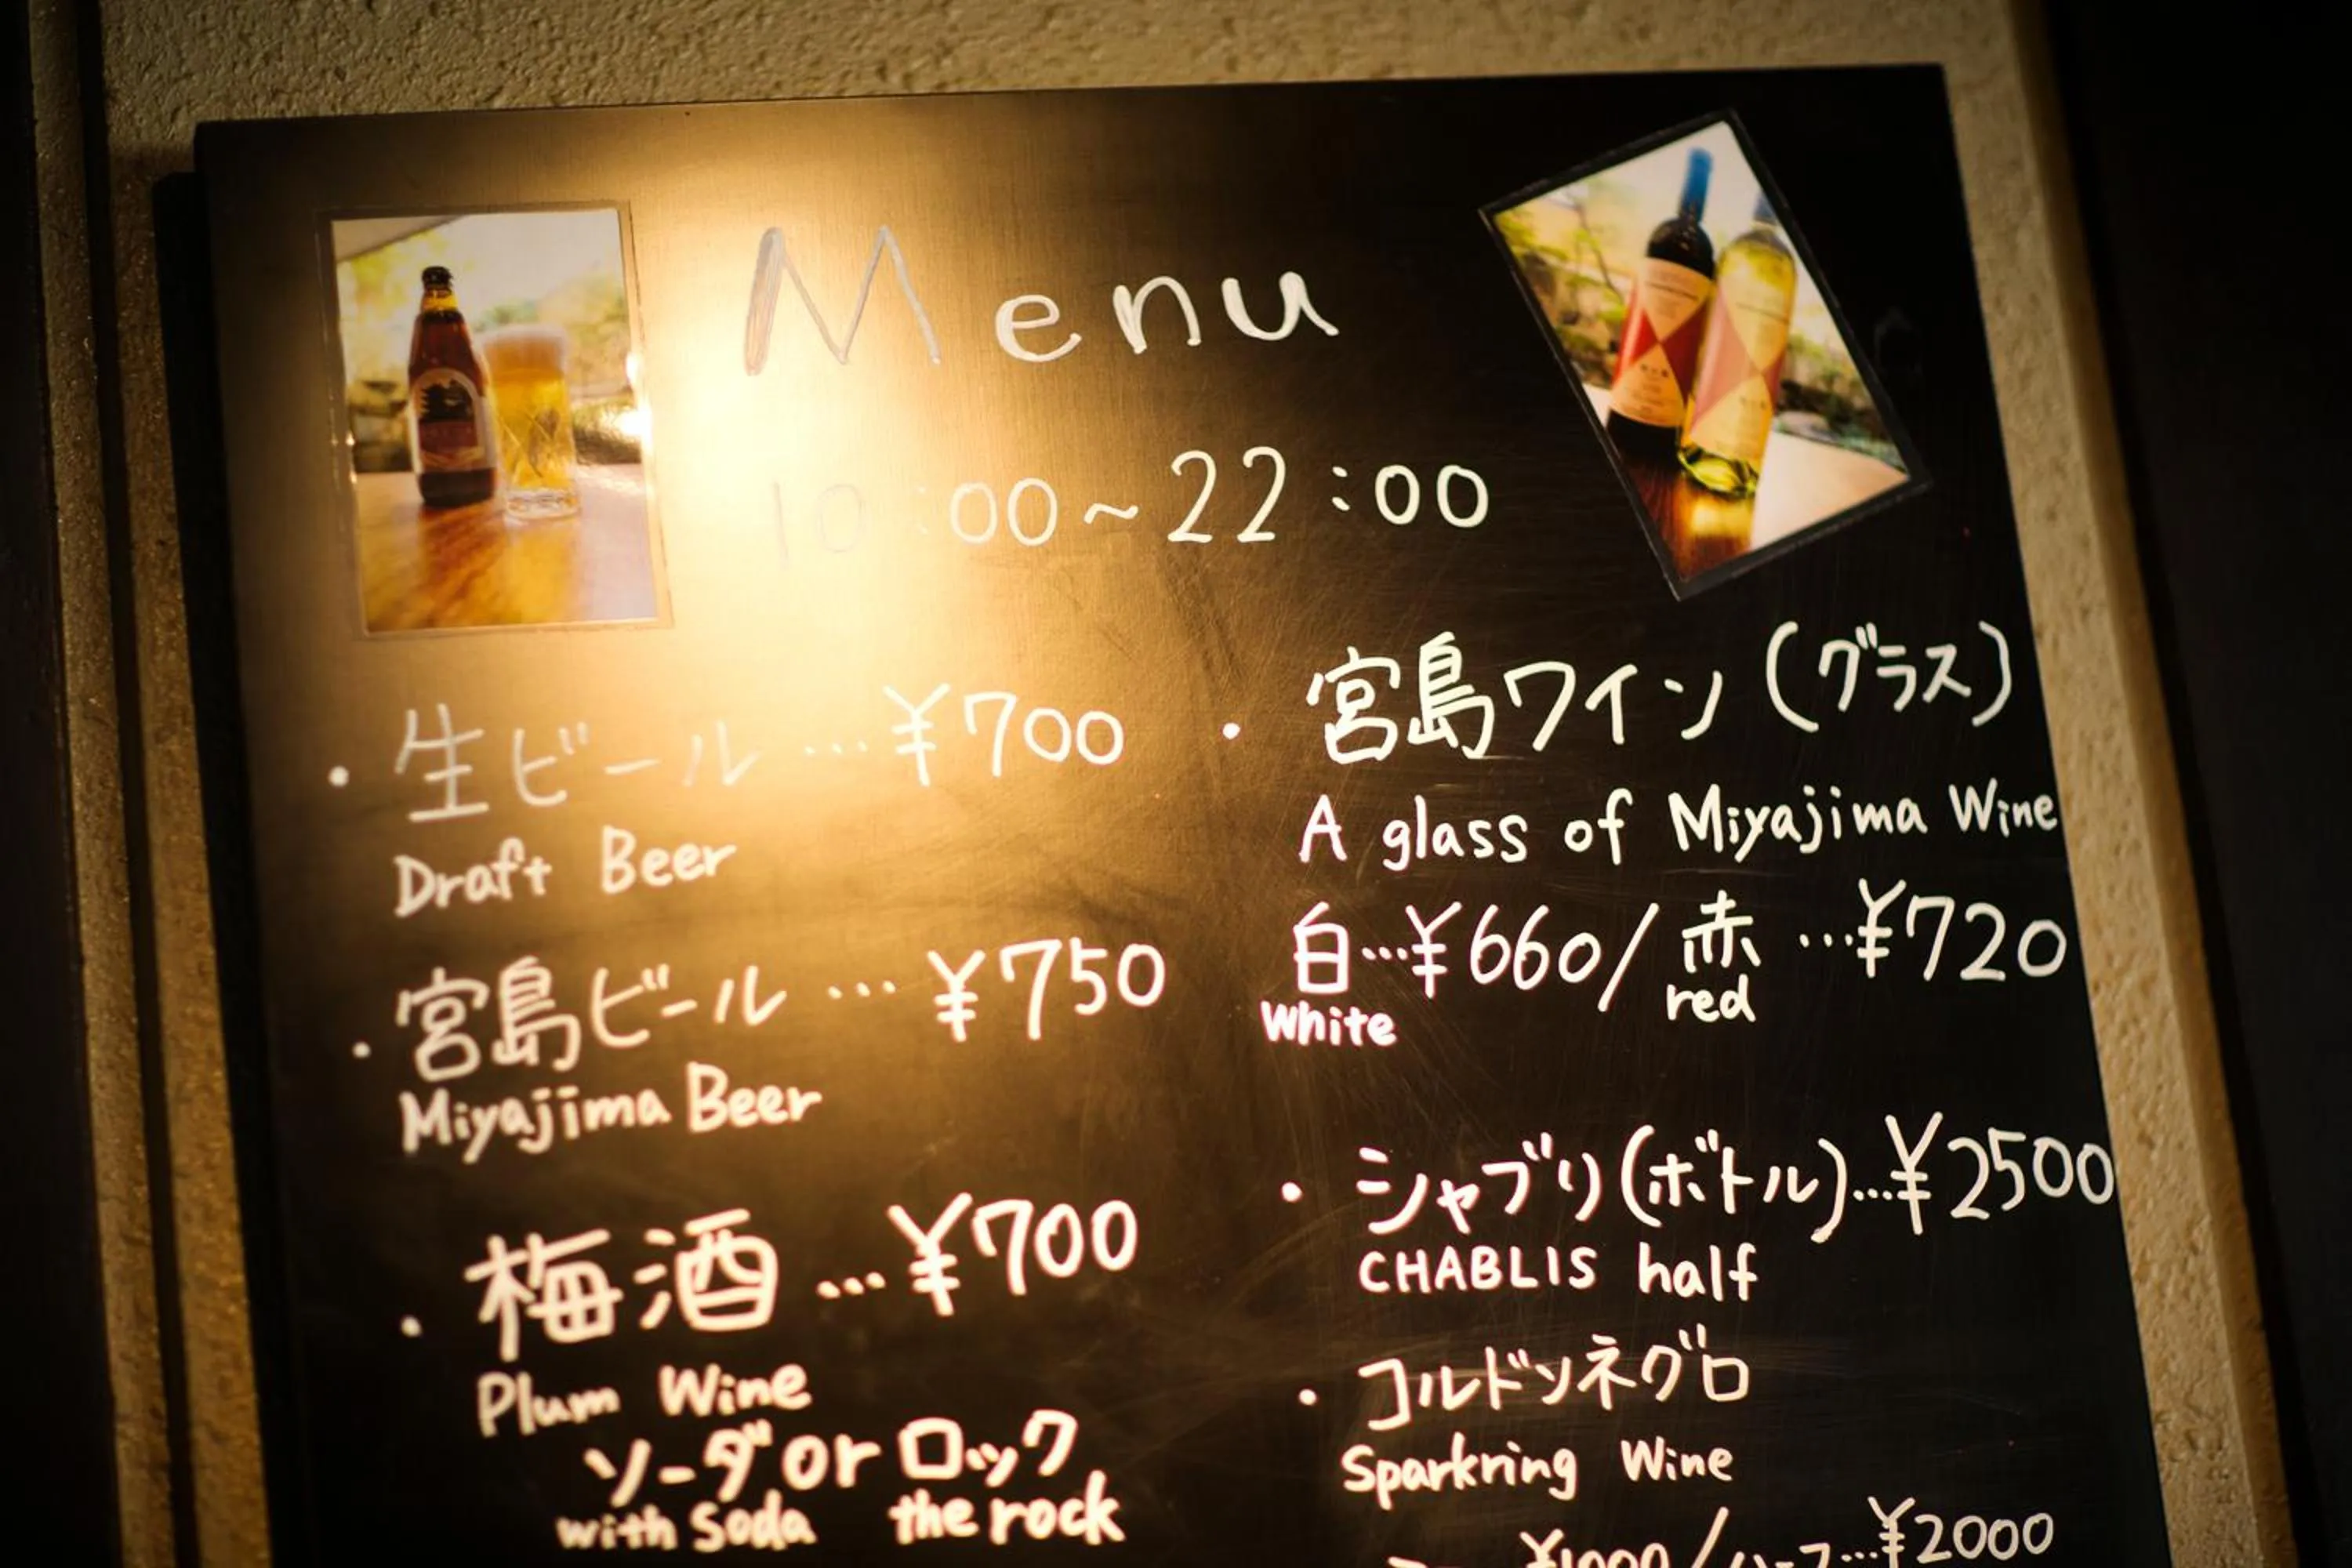 Menu
10:00~22:00
・生ビール…¥700
Draft Beer
・宮島ビール…¥750
Miyajima Beer
・梅酒…¥700
Plum Wine
ソーダ or ロック
with Soda the rock
・宮島ワイン(グラス)
A glass of Miyajima Wine
白…¥660/赤…¥720
White red
・シャブリ(ボトル)…¥2500
CHABLIS half
・コルドンネグロ
Sparkring Wine
¥2000